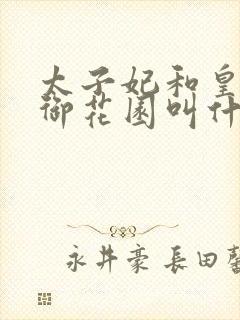 太子妃和皇
御花园叫什
永井豪 長田馨